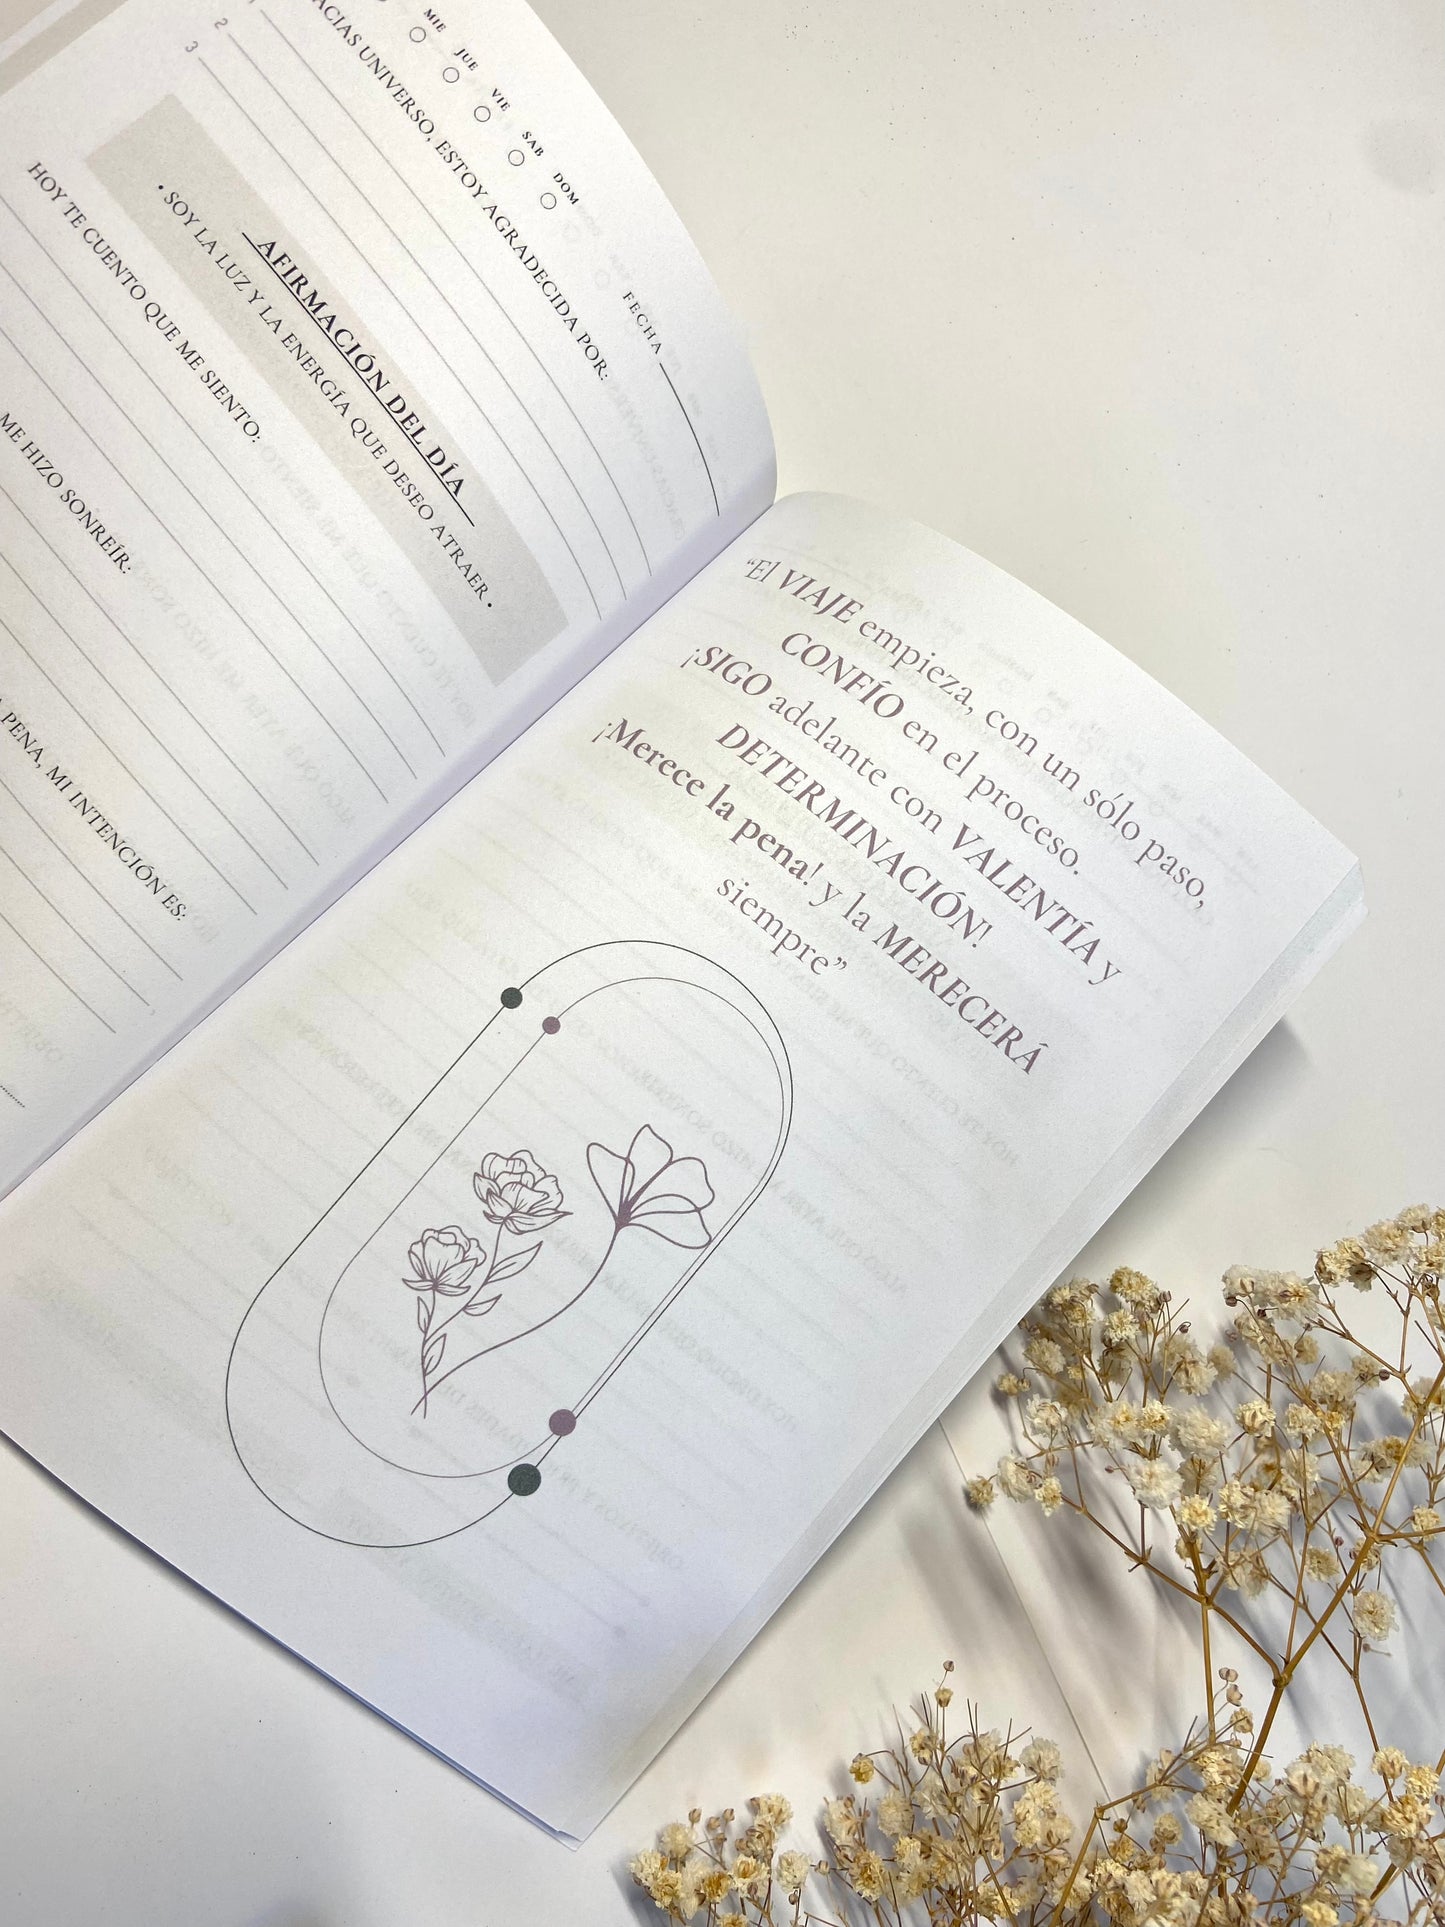 MIE
JUE
VIE
SAB
DOM
FECHA
UNIVERSO, ESTOY AGRADECIDA POR:
2
3
AFIRMACIÓN DEL DÍA
• SOY LA LUZ Y LA ENERGÍA QUE DESEO ATRAER •
HOY TE CUENTO QUE ME SIENTO:
ME HIZO SONREÍR:
PENA, MI INTENCIÓN ES:
“El VIAJE empieza, con un sólo paso,
CONFÍO en el proceso.
¡SIGO adelante con VALENTÍA y
DETERMINACIÓN!
¡Merece la pena! y la MERECERÁ
siempre”